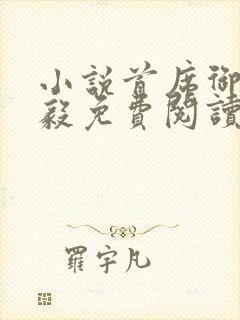 小說首席御
毅免費閱讀
羅宇凡